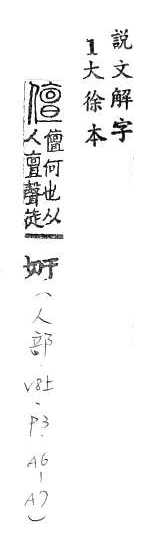 說文解字
1大徐本
儃
儃何也从
人亶聲徒
干
切
(人部 V8上·P3·A6-A7)